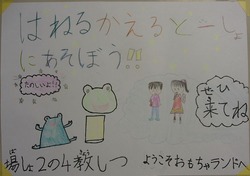 はねるかえると いっしょ
にあそぼう!!
たのしいよ!!
ぜひ
来てね
場しょ2の4教しつ
ようこそおもちゃランドへ